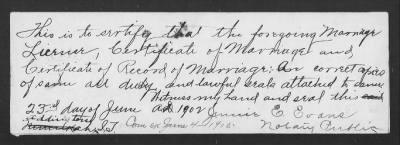 This is to srtify that the foregoing Marriage
Liscense, Certificate of Marriage and
Certificate of Record of Marriage: Are corret copies
of same all duley and lawful seals attached to same,
Witness my hand and seal this
23rd day of June a.d. 1902
Jennie E Evans
I.T. Com ex June 4 - 190
Notary Public